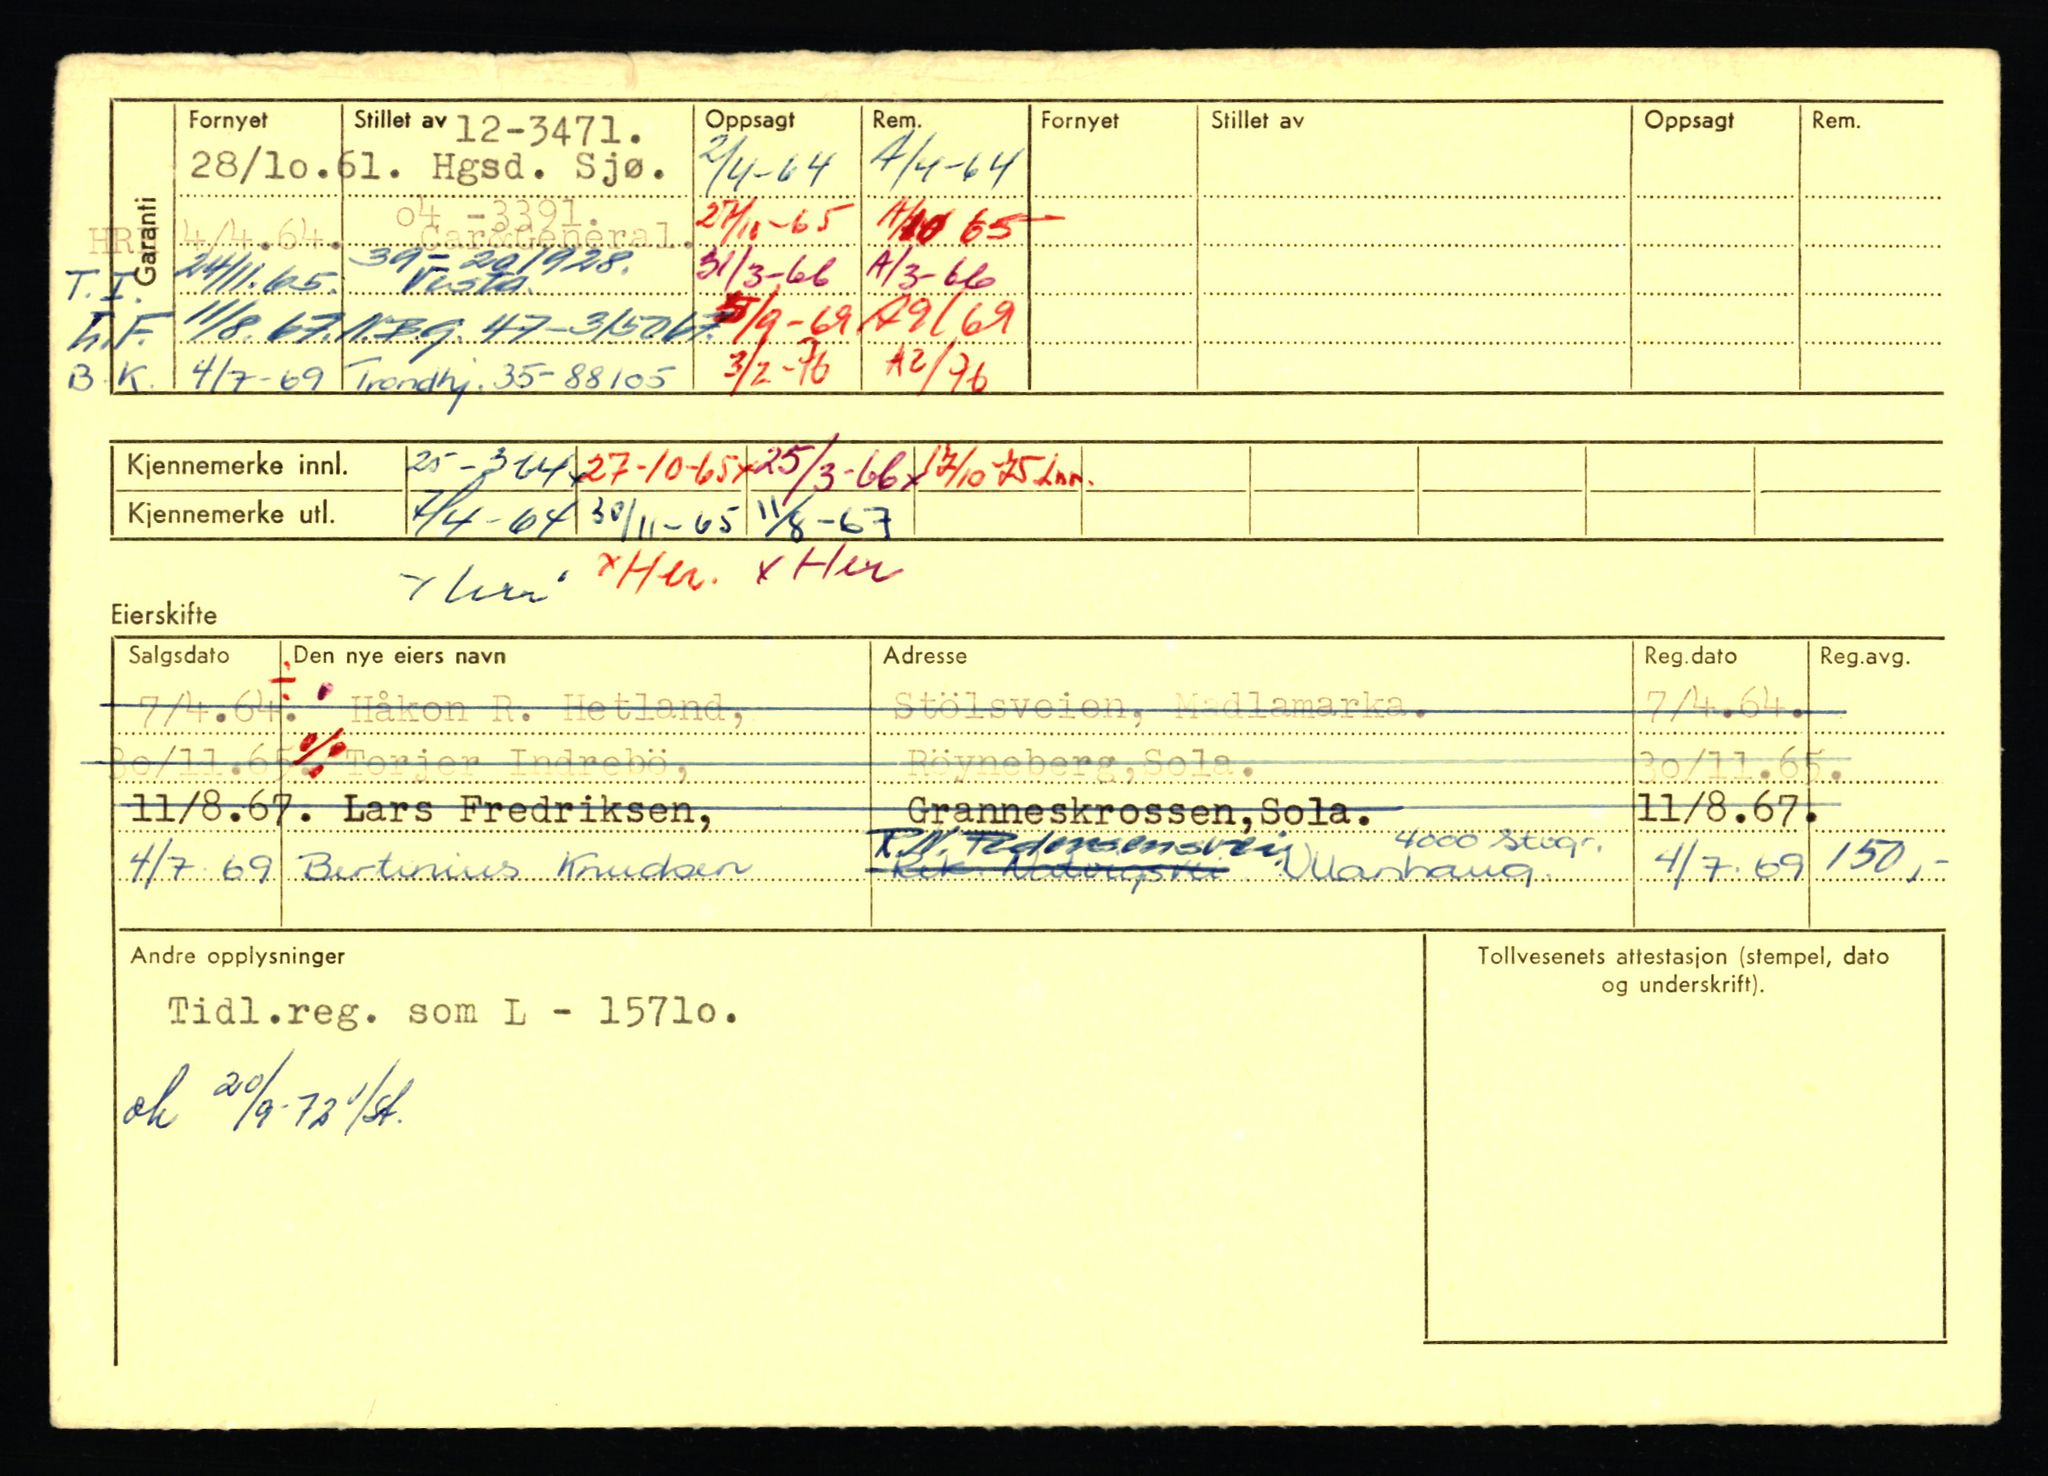 Garanti
Fornyet Stillet av Oppsagt Rem. Fornyet Stillet av Oppsagt Rem.
12-3471.
28/lo.61. Hgsd. Sjø. 2/4-64 A/4-64
o4 -3391.
HRH 4/4.64. Car&General. 27/10-65 A/10 65
39-201928.
T.I. 24/11.65. Vesta. 31/3-66 A/3-66
L.F. 11/8.67. N.B.G. 47-315067. 5/9-69 A9/69
B.K. 4/7-69 Trondhj. 35-88105 3/2-76 A2/76
Kjennemerke innl. 25-3-64x 27-10-65x 25/3-66x 17/10-75
Kjennemerke utl. 7/4-64 30/11-65 11/8-67
x Her. x Her
Eierskifte
Salgsdato Den nye eiers navn Adresse Reg.dato Reg.avg.
7/4.64. Håkon R. Hetland, Stölsveien, Madlamarka. 7/4.64.
3o/11.65. Torjer Indrebö, Röyneberg,Sola. 3o/11.65.
11/8.67. Lars Fredriksen, Granneskrossen,Sola. 11/8.67.
4/7.69 Bertinius Knudsen Ullanhaug. 4000 Stvgr. 4/7.69 150,-
Andre opplysninger
Tollvesenets attestasjon (stempel, dato
og underskrift).
Tidl.reg. som L - 1571o.
ok 20/9-72